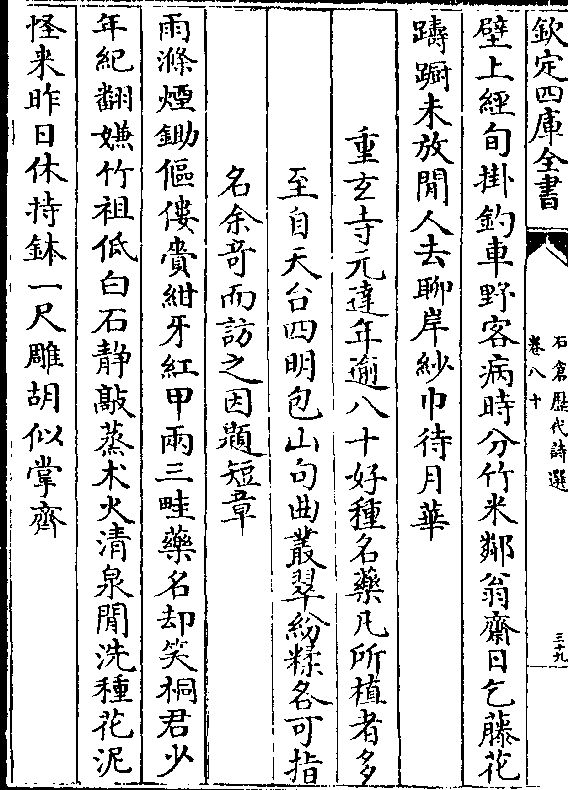 欽定四庫全書
石倉歷代詩選
卷八十
三十九
壁上經旬掛釣車野客病時分竹米鄰翁齋日乞藤花
躊躕未放閒人去聊岸紗巾待月華
重玄寺元達年逾八十好種名藥凡所植者多
至自天台四明包山句曲叢翠紛糅各可指
名余奇而訪之因題短章
雨滌煙鋤傴僂賫紺牙紅甲兩三畦藥名却笑桐君少
年紀翻嫌竹祖低白石靜敲蒸术火清泉閒洗種花泥
怪来昨日休持鉢一尺雕胡似掌齊